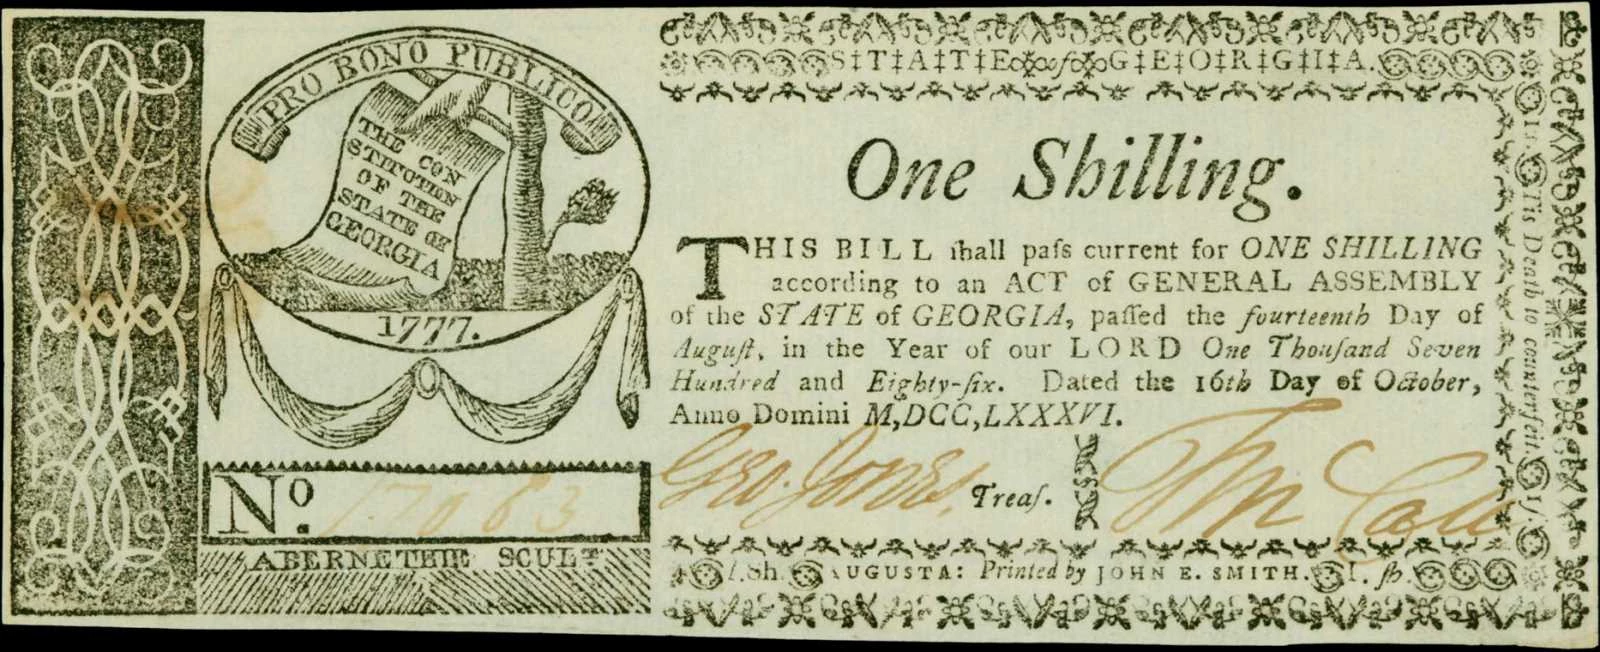 PRO BONO PUBLICO
THE CON
STITUTEN
OF THE
STATE OF
GEORGIA
1777.
No. 17083
ABERNETHIE SCULT.
S‡T‡A‡T‡E of G‡E‡O‡R‡G‡I‡A.
One Shilling.
THIS BILL ſhall paſs current for ONE SHILLING
according to an ACT of GENERAL ASSEMBLY
of the STATE of GEORGIA, paſſed the fourteenth Day of
Auguſt, in the Year of our LORD One Thouſand Seven
Hundred and Eighty-ſix. Dated the 16th Day of October,
Anno Domini M,DCC,LXXXVI.
Geo. Jones, Treaſ.
AUGUSTA: Printed by JOHN E. SMITH. I. ſh.
'Tis Death to counterfeit.